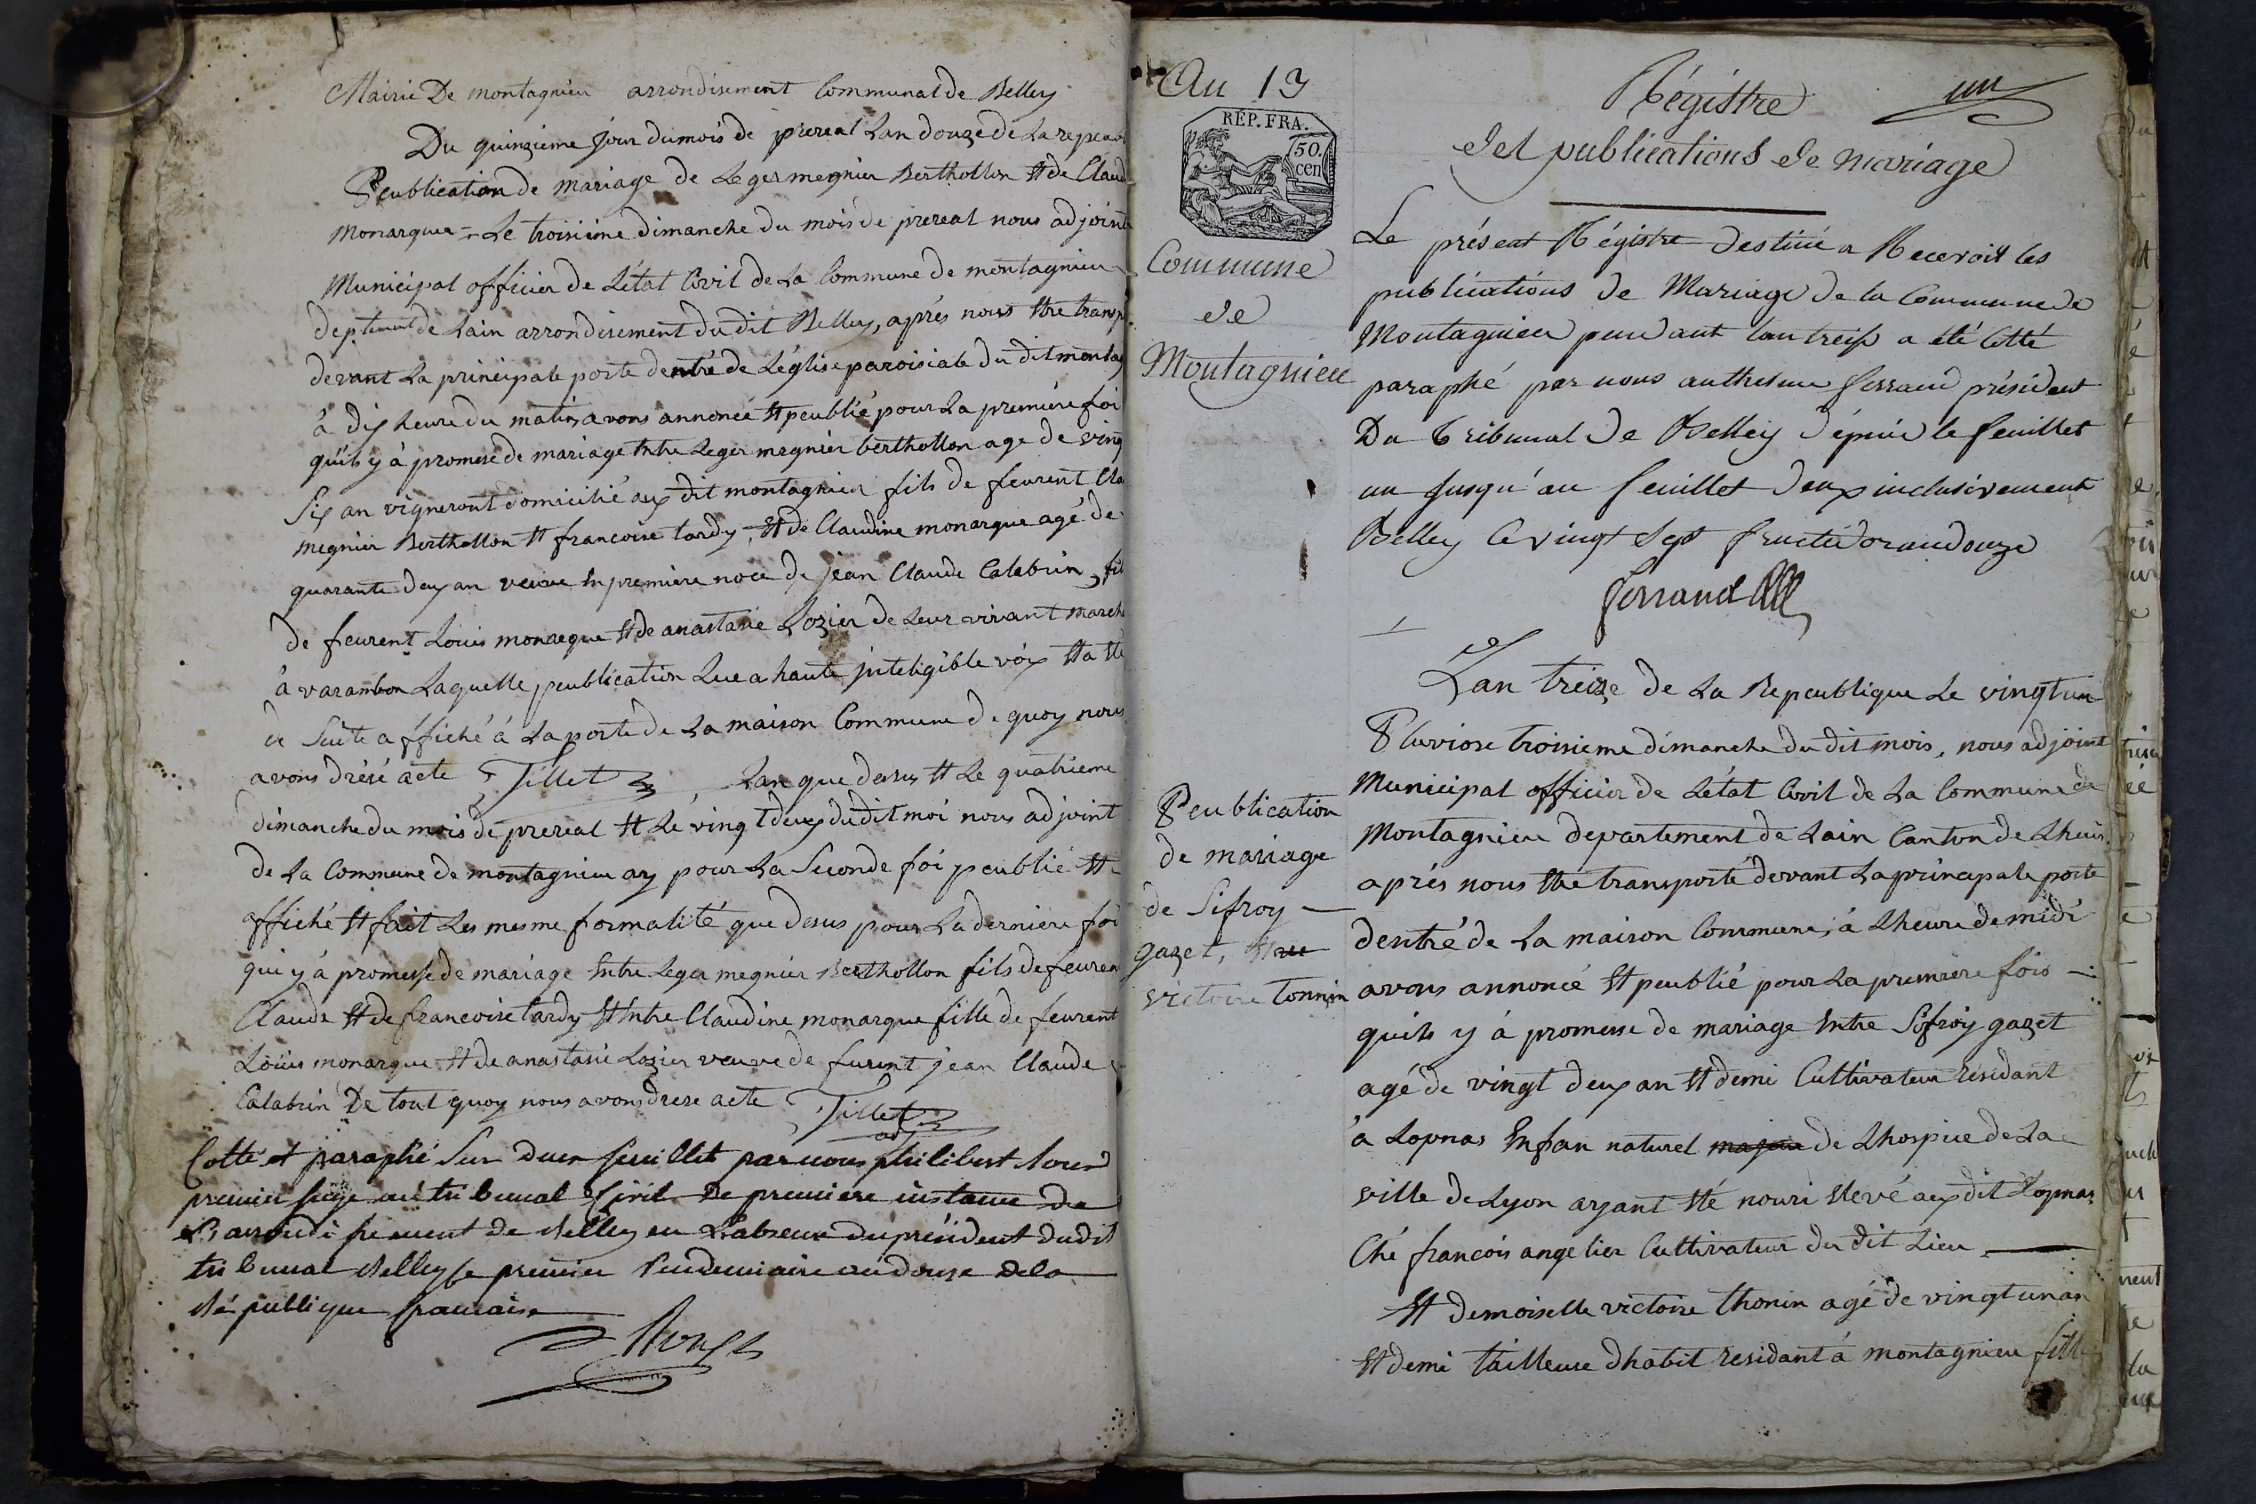 Mairie De montagnieu arrondisement Communal de Belley
Du quinzieme jour du mois de prereal Lan douze de La repeu
Peublication de mariage de Leger megnier Berthollon Et de Claud
Monarque = Le troisiéme dimanche du mois de prereal nous adjoint
Municipal officier de Létat Civil de La Commune de montagnieu
deptement de Lain arrondisement du dit Belley, aprés nous Etre transp
devant La principale porte dentré de Léglise paroisiale du dit montag
à dix heure du matin avons annoncé Et peublié pour La premiére foi
quils y à promese de mariage Entre Leger megnier berthollon age de ving
Six an vigneront domicilié aux dit montagnieu fils de feurent Cla
megnier Berthollon Et francoise tardy, Et de Claudine monarque agé de
quarante deux an veuve En premiere noce de jean Claude Calabrin, fil
de feurent Louis monarque Et de anastasie Lozier de Leur vivant march
à varambon Laquelle peublication Lue a haute inteligible voix Et a Eté
de Suite affiché à La porte de La maison Commune de quoy nous
avons drésé acte Tillet Lan que desus Et Le quatrieme
dimanche du mois de prereal Et Le vingt deux du dit moi nous adjoint
de La Commune de montagnieu ay pour La Seconde foi peublié Et
affiché Et fait Les mesme formalité que desus pour La derniere foi
qui y à promesse de mariage Entre Leger megnier Berthollon fils de feuren
Claude Et de francoise tardy Et Entre Claudine monarque fille de feurent
Loüis monarque Et de anastasie Lozier veuve de furent jean Claude
Calabrin De tout quoy nous avons drese acte Tillet
adj
Cotté et paraphé Sur deux feuillet par nous philibert
premier juge au tribunal Civil De premiere instance de
L'arrondissement de Belley en L'absence du président dudit
tribunal Belley le premier Vendemiaire an douze de la
République francaise
An 13
RÉP. FRA.
50.
cen
Commune
de
Montagnieu
Régistre
un
des publications de mariage
Le présent Régistre destiné a Recevoir les
publications de Mariage de la Commune de
Montagnieu pendant lan treise a été Cotté
paraphé par nous anthelme ferrand président
Du Tribunal de Belley dépuis le feuillet
un jusqu'au feuillet deux inclusivement
Belley Ce vingt Sept fructidor an douze
ferrand
Lan treize de La Repeublique Le vingt un
Pluviose troisieme dimanche du dit mois, nous adjoint
Municipal officier de Létat Civil de La Commune de
Montagnieu departement de Lain Canton de Lhuis
aprés nous Etre transporté devant La principale porte
dentré de La maison Commune, à Lheure de midi
avons annoncé Et peublié pour La premiere fois
quils y à promesse de mariage Entre Sifroy gazet
agé de vingt deux an Et demi Cultivateur residant
à Lopnas Enfan naturel majeur de Lhospice de La
ville de Lyon ayant Eté nouri Elevé aux dit Lopnas
Ché francois angelier Cultivateur du dit Lieu
Et demoiselle victoire thonin agé de vingt un an
Et demi tailleuse dhabit residant à montagnieu fille
Peublication
de mariage
de Sifroy
gazet, Et
victoire tonnin